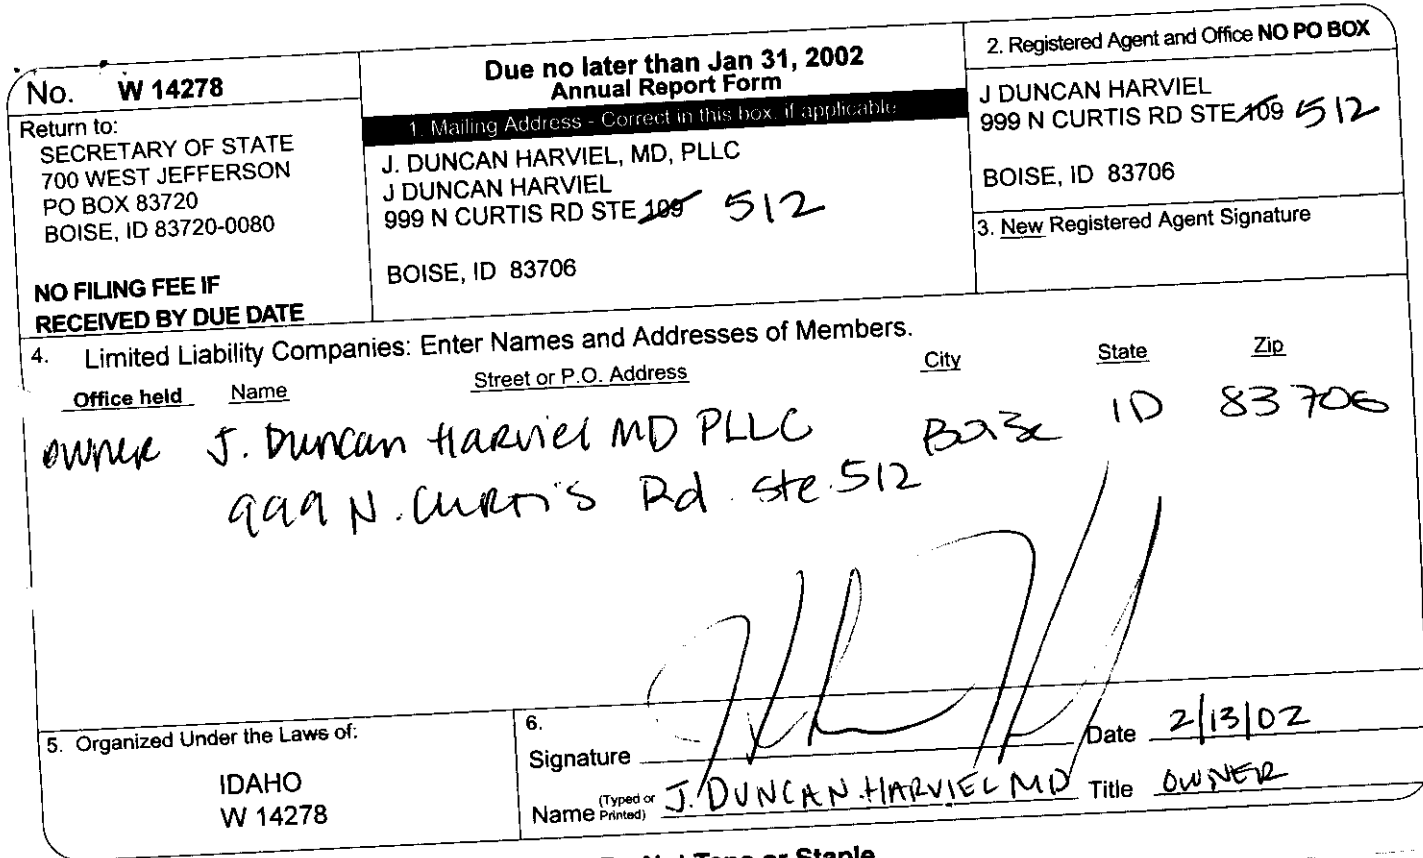 No. W 14278
Return to:
SECRETARY OF STATE
700 WEST JEFFERSON
PO BOX 83720
BOISE, ID 83720-0080
NO FILING FEE IF
RECEIVED BY DUE DATE
Due no later than Jan 31, 2002
Annual Report Form
1. Mailing Address - Correct in this box, if applicable
J. DUNCAN HARVIEL, MD, PLLC
J DUNCAN HARVIEL
999 N CURTIS RD STE 109 512
BOISE, ID 83706
2. Registered Agent and Office NO PO BOX
J DUNCAN HARVIEL
999 N CURTIS RD STE 109 512
BOISE, ID 83706
3. New Registered Agent Signature
4. Limited Liability Companies: Enter Names and Addresses of Members.
Office held Name Street or P.O. Address City State Zip
owner J. Duncan Harviel MD PLLC Boise ID 83706
999 N. Curtis Rd. Ste. 512
5. Organized Under the Laws of:
IDAHO
W 14278
6.
Signature Date 2/13/02
Name (Typed or Printed) J. DUNCAN HARVIEL MD Title OWNER
Do Not Tape or Staple